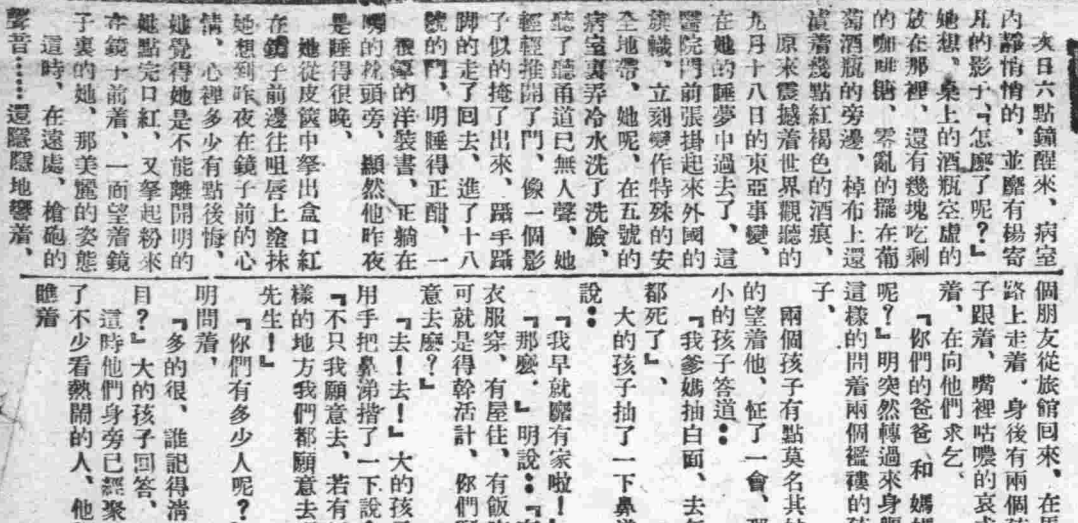 次日六點鐘醒來、病室
內靜悄悄的、並靡有楊寄
凡的影子、『怎麼了呢？』
她想、桌上的酒瓶空虛的
放在那裡、還有幾塊吃剩
的咖啡糖、零亂的擺在葡
萄酒瓶的旁邊、棹布上還
漬着幾點紅褐色的酒痕、
原來震撼着世界觀聽的
九月十八日的東亞事變、
在她的睡夢中過去了、這
醫院門前張掛起來外國的
旗幟、立刻變作特殊的安
全地帶、她呢、在五號的
病室裏弄冷水洗了洗臉、
聽了聽甬道已無人聲、她
輕輕推開了門、像一個影
子似的掩了出來、躡手躡
脚的走了回去、進了十八
號的門、明睡得正酣、一
很厚的洋裝書、正躺在
明的枕頭旁、顯然他昨夜
是睡得很晚、
她從皮篋中拏出盒口紅
在鏡子前邊往咀唇上塗抹
她想到昨夜在鏡子前的心
情、心裡多少有點後悔、
她覺得她是不能離開明的
她點完口紅、又拏起粉來
在鏡子前着、一面望着鏡
子裏的她、那美麗的姿態
這時、在遠處、槍砲的
聲音……還隱隱地響着、
個朋友從旅館回來、在
路上走着、身後有兩個
子跟着、嘴裡咕噥的哀
着、在向他們求乞、
『你們的爸爸、和媽
呢？』明突然轉過來身
這樣的問着兩個襤褸的
子、
兩個孩子有點莫名其
的望着他、怔了一會、
小的孩子答道：
『我爹媽抽白面、去
都死了』、
大的孩子抽了一下鼻
說：
『我早就靡有家啦！
『那麼、』明說：『
衣服穿、有屋住、有飯
可就是得幹活計、你們
意去麼？』
『去！去！』大的孩
用手把鼻涕揩了一下說
『不只我願意去、若有
樣的地方我們都願意去
先生！』
『你們有多少人呢？
明問着、
『多的很、誰記得淸
目？』大的孩子回答、
這時他們身旁已經聚
了不少看熱鬧的人、他
瞧着